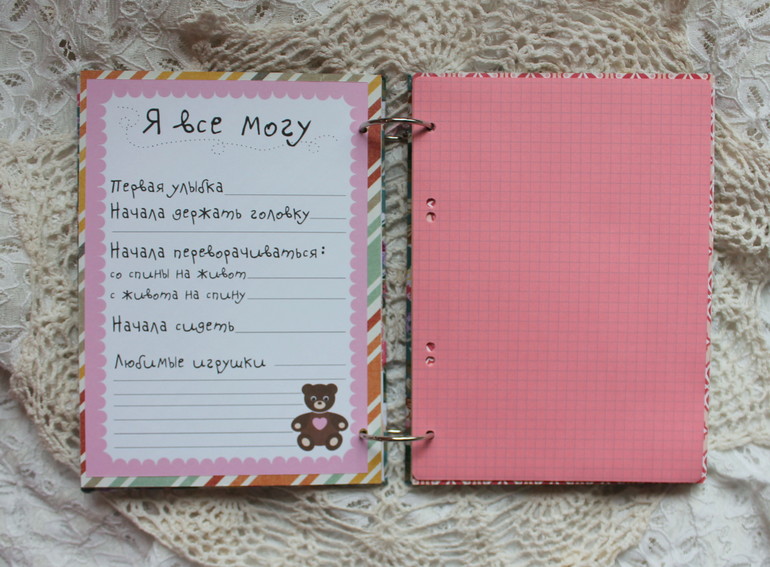 Я все могу
Первая улыбка
Начала держать головку
Начала переворачиваться:
со спины на живот
с живота на спину
Начала сидеть
Любимые игрушки